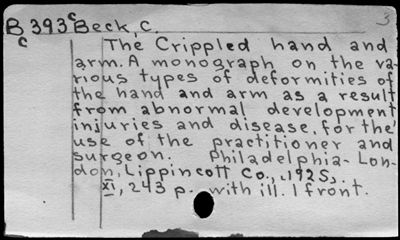 3
B 393c Beck, C.
c The Crippled hand and
arm. A monograph on the va-
rious types of deformities of
the hand and arm as a result
from abnormal development
injuries and disease, for the
use of the practitioner and
surgeon. Philadelphia-Lon-
don, Lippincott Co., 1925.
XI, 243 p. with ill. 1 front.